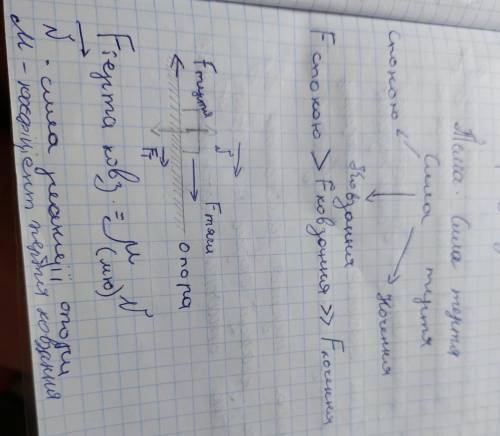 Тема. Сила тертя
Сила тертя
спокою ковзання кочення
F спокою > F ковзання >> F кочення
N
F тертя F тяги
F опора
F тертя ковз. = μ N
(мю)
N - сила реакції опори
М - коефіцієнт тертя ковзання